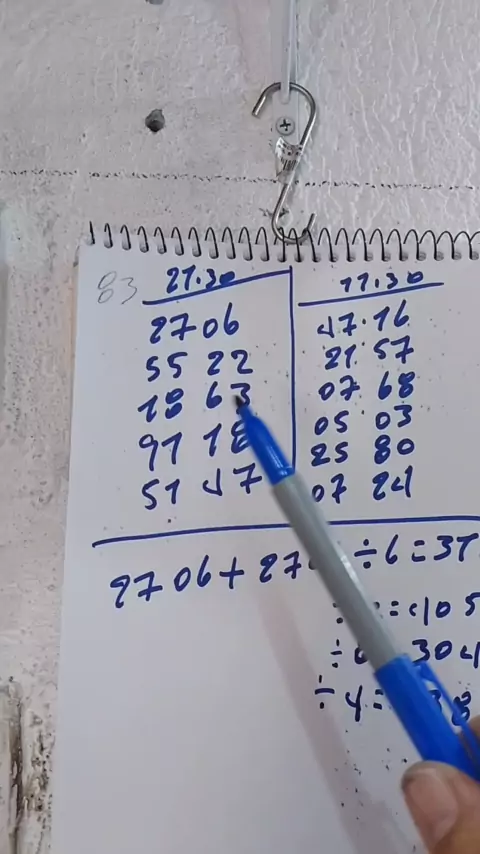 83
21.30
2706
55 22
18 63
91 18
51 47
11.30
47.16
21.57
07 68
05 03
25 80
07 24
2706+27
÷6=37
=405
÷
304
÷4=